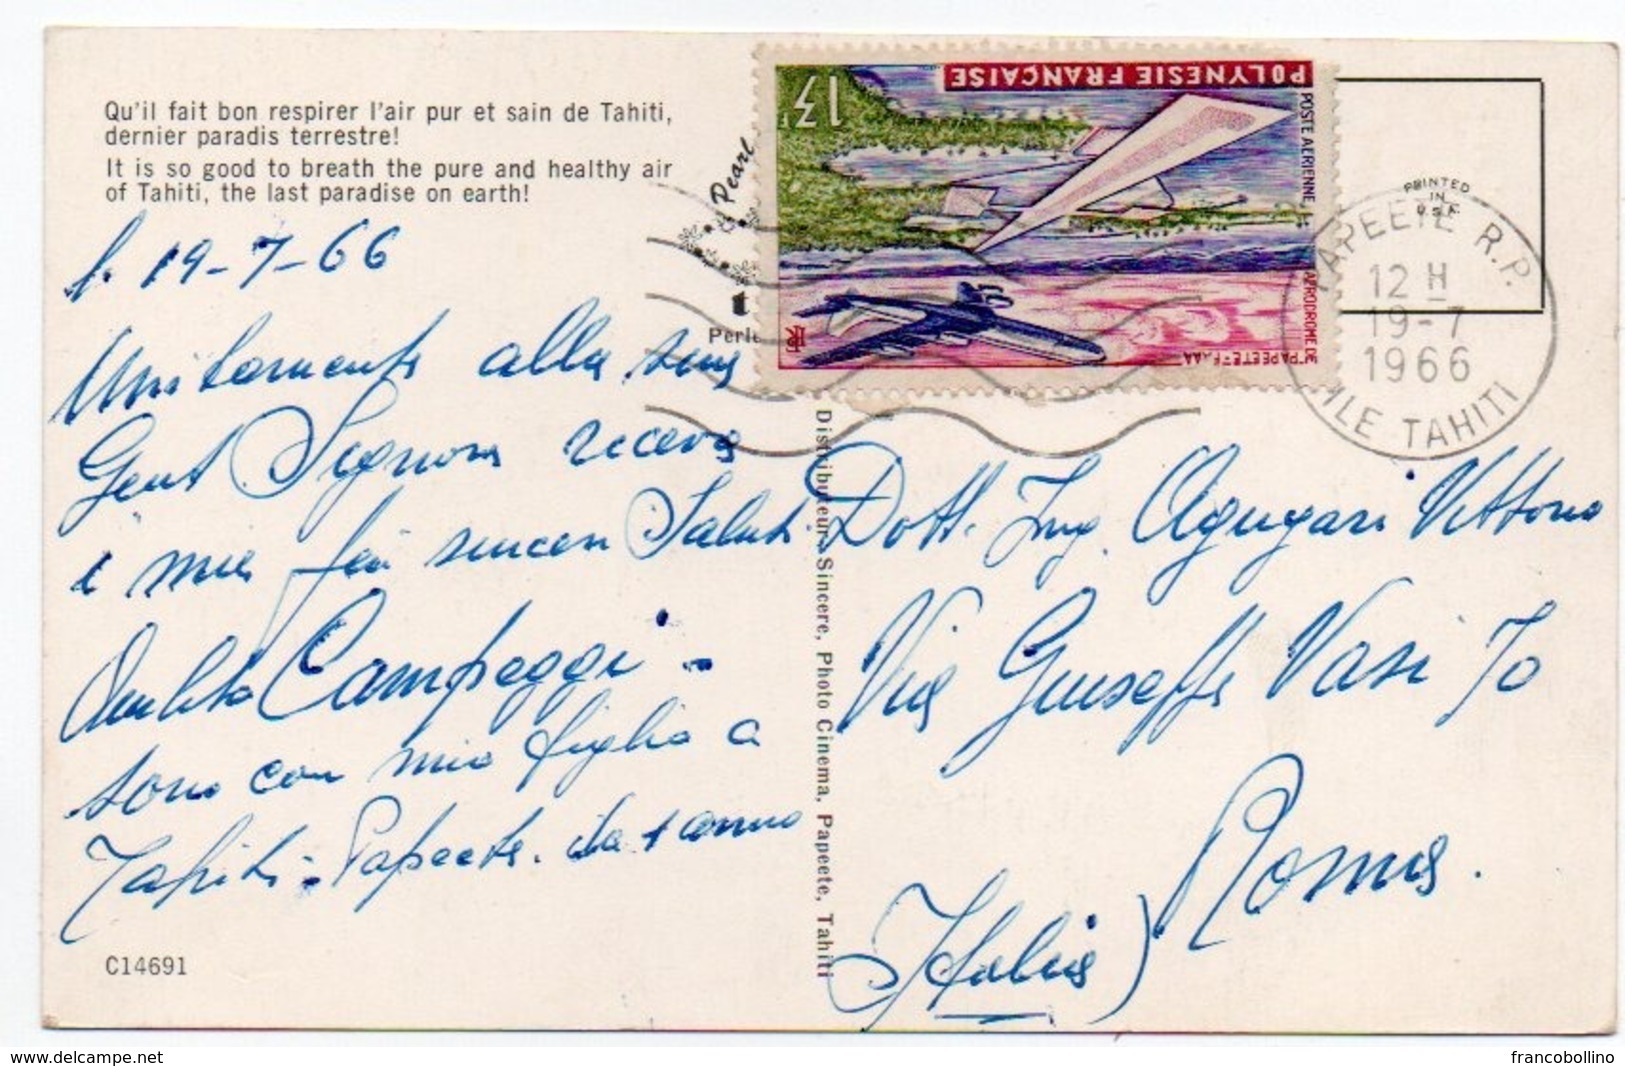 Qu'il fait bon respirer l'air pur et sain de Tahiti,
dernier paradis terrestre!
It is so good to breath the pure and healthy air
of Tahiti, the last paradise on earth!
19-7-66
Unitamente alla sua
Gent Signora riceva
i miei più sinceri Saluti
Campeggi -
sono con mia figlia a
Tahiti - Papeete.
C14691
Pearl
Perle
13F
POLYNESIE FRANÇAISE
POSTE AERIENNE
AERODROME DE
PAPEETE-FAAA
PRINTED
IN
U.S.A.
PAPEETE R.P.
12 H
19-7
1966
ILE TAHITI
Distributeur, Sincere, Photo Cinema, Papeete, Tahiti
Dott. Ing. Agugari Vittorio
Via Giuseppe Vasi
Roma.
(Italia)
www.delcampe.net
francobollino